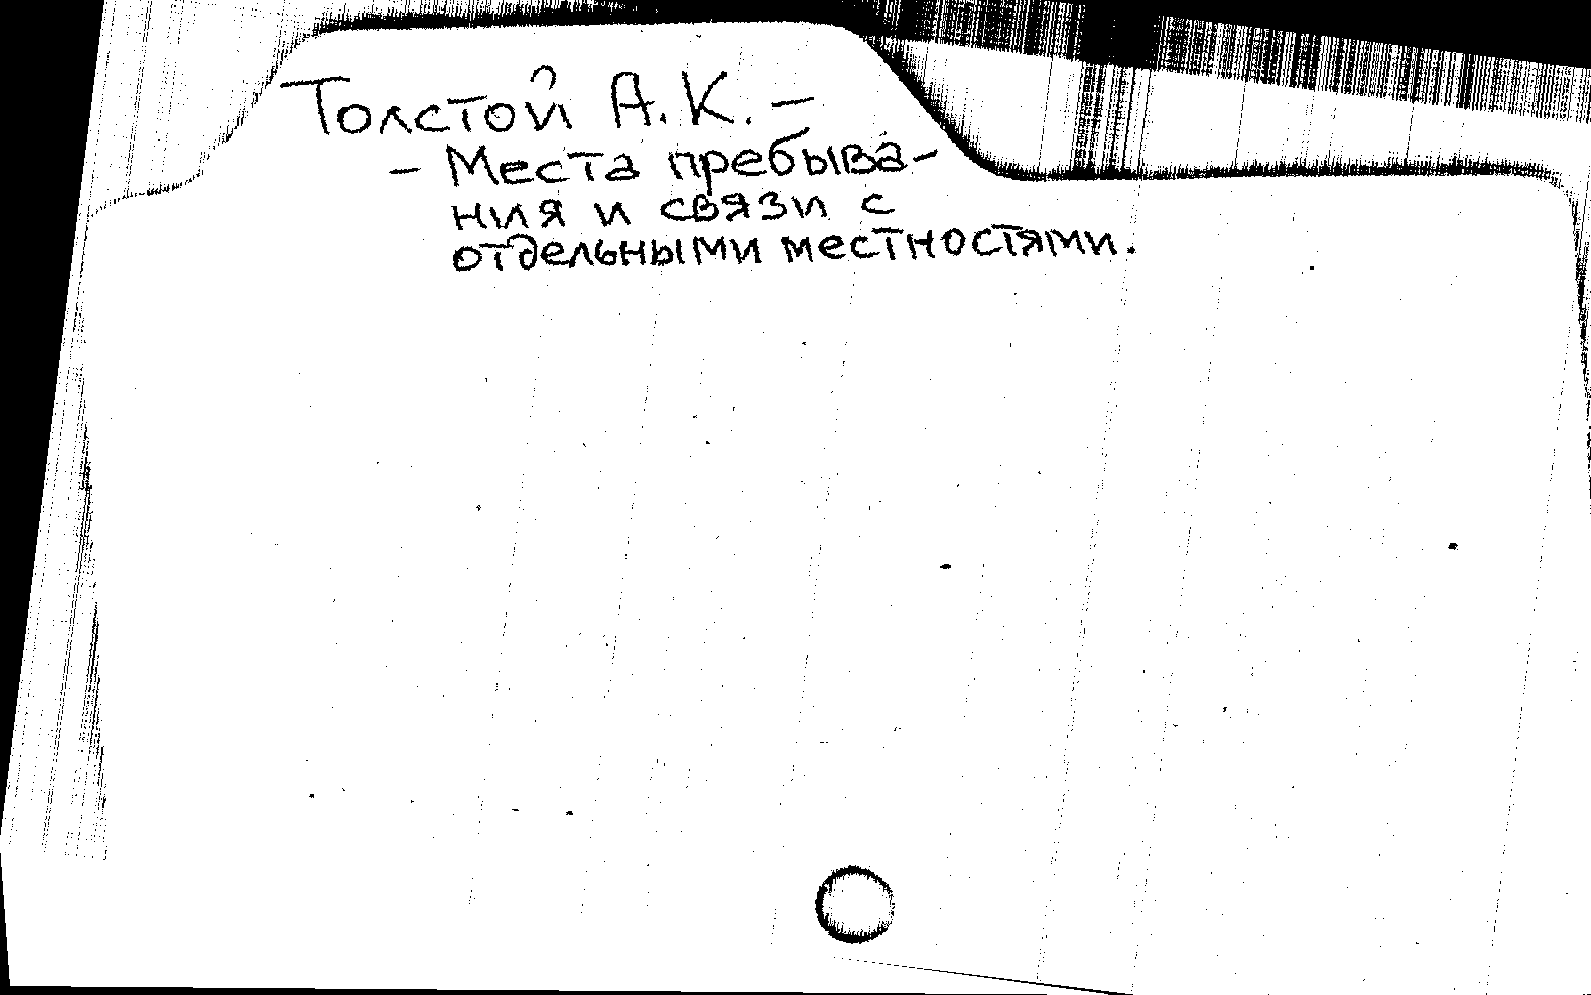 Толстой А.К. –
– Места пребыва-
ния и связи с
отдельными местностями.